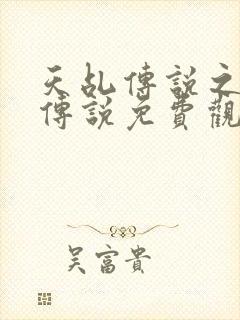 天乩傳說之
傳說免費觀
吳富貴